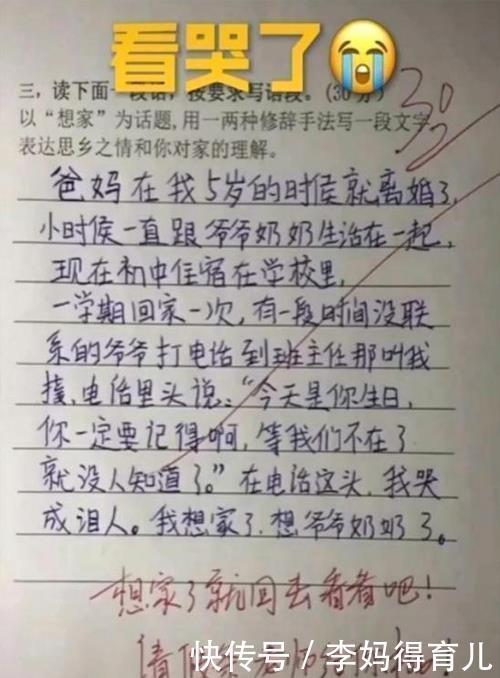 看哭了
三、读下面一段话，按要求写话段。（30分）
30
以“想家”为话题，用一两种修辞手法写一段文字，
表达思乡之情和你对家的理解。
爸妈在我5岁的时候就离婚了，
小时侯一直跟爷爷奶奶生活在一起，
现在初中住宿在学校里，
一学期回家一次，有一段时间没联
系的爷爷打电话到班主任那叫我
接，电话里头说：“今天是你生日，
你一定要记得啊，等我们不在了
就没人知道了。”在电话这头，我哭
成泪人。我想家了，想爷爷奶奶了。
想家了就回去看看吧！
快传号／李妈得育儿